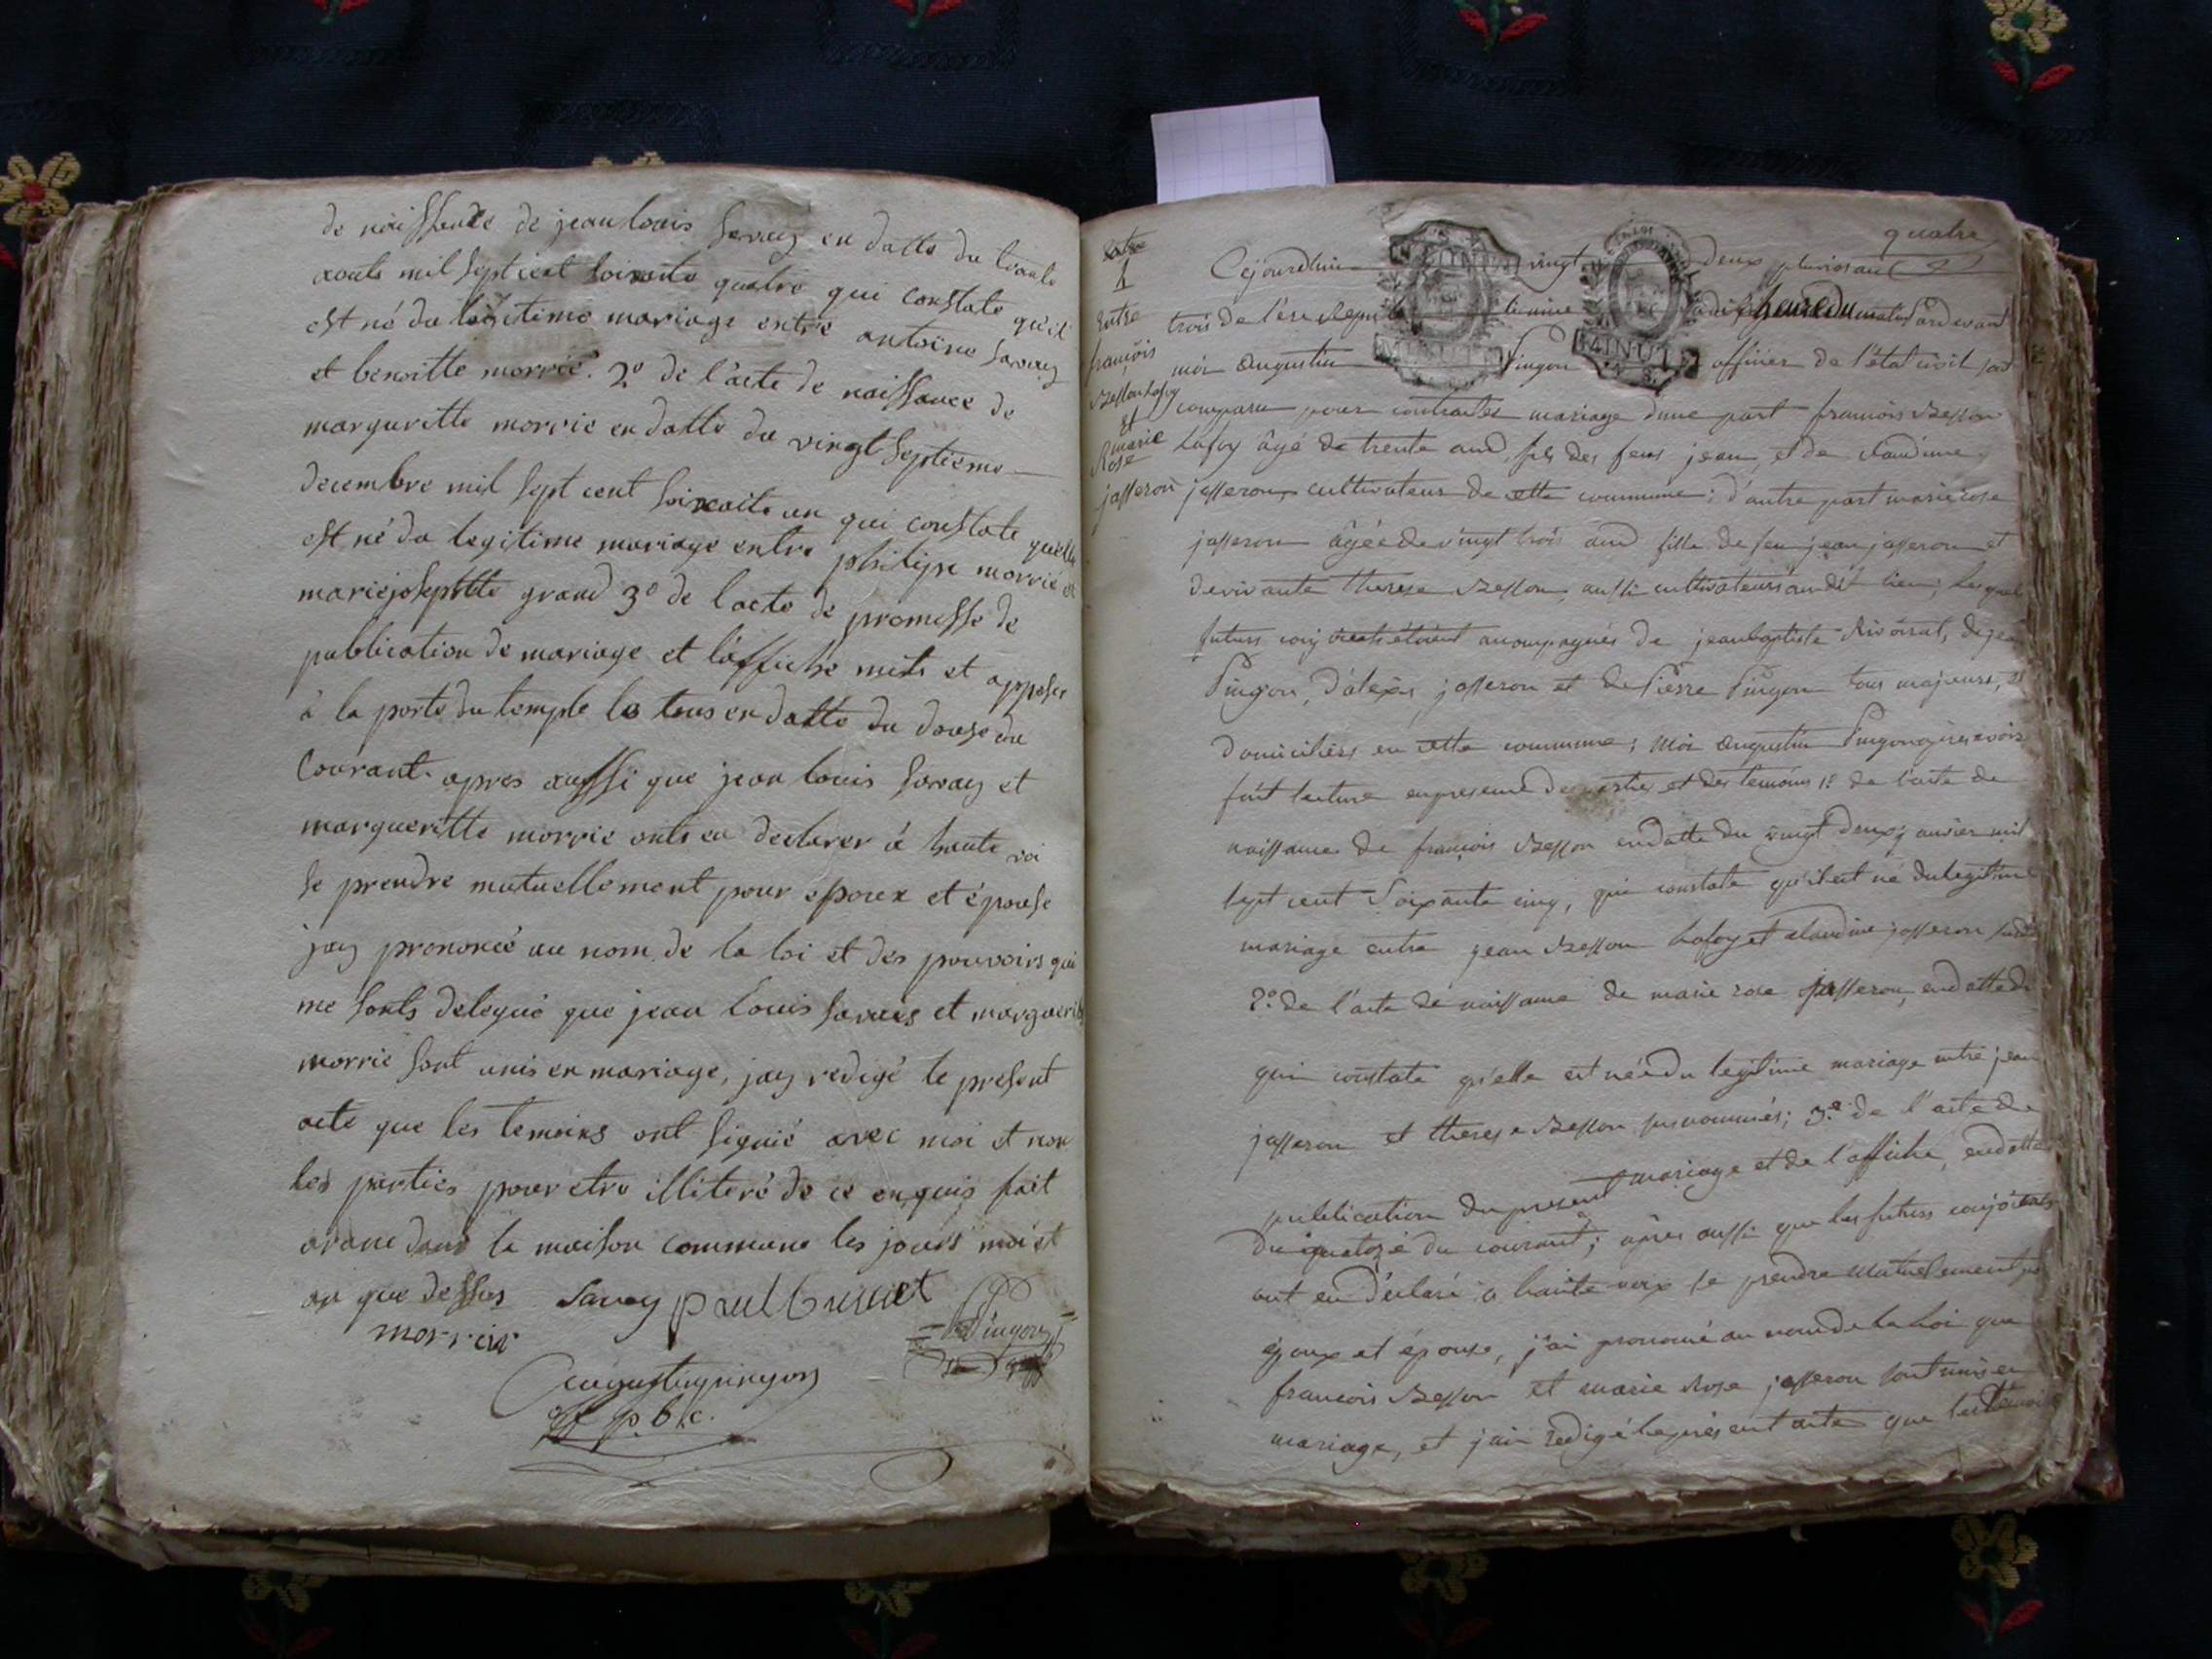 de naissence de jean louis Savay en datte du trante
aouts mil sept cent soixante quatre qui constate qu'il
est né du légitime mariage entre antoine Savay
et benoitte morrié. 2º de l'acte de naissance de
margueritte morrie en datte du vingt septieme
decembre mil sept cent soixante un qui constate quelle
est né du legitime mariage entre philipe morrié et
marie josephtte grand 3º de l'acte de promesse de
publication de mariage et l'affiche mits et apposer
à la porte du temple le tous en datte du douse du
Courant. apres aussi que jean louis Savay et
margueritte morrie onts eu declarer à haute voi
se prendre mutuellement pour epoux et épouse
jay prenoncé au nom de la loi et des pouvoirs qui
me sonts delegué que jean Louis Savais et marguerite
morrie sont unis en mariage, jay redigé le present
acte que les temoins ont signié avec moi et non
les parties pour etre illiteré de ce enquis fait
dans la maison commune les jours moi et
an que dessus Savoy paul brunet
morrier
Pingon
augustin pingon
off p. b. c.
quatre
1
Entre
françois
Besson Lafoy
et
marie
Rose
jasseron
Cejourdhui vingt deux pluviose an
trois de l'ere Repu heure du matin Pardevant
MINUTE
MINUTE
moi augustin Pingon officier de l'état civil sont
comparu pour contracter mariage d'une part francois Besson
Lafoy âgé de trente ans, fils des feus jean et de claudine
jasseron cultivateur de cette commune; d'autre part marie rose
jasseron âgée de vingt trois ans fille de feu jean jasseron et
de vivante therese Besson, aussi cultivateurs audit lieu; Lesquels
futurs conjoints étoient accompagnés de jean baptiste Rivoirat, de jean
Pingon, d'alexis jasseron et de Pierre Pingon tous majeurs, et
domiciliés en cette commune; moi augustin Pingon après avoir
fait lecture en presence des parties et des temoins 1º de l'acte de
naissance de françois Besson en datte du vingt deux janvier mil
sept cent Soixante cinq, qui constate qu'il est né du legitime
mariage entre jean Besson Lafoy et claudine jasseron
2º de l'acte de naissance de marie rose jasseron, en datte du
qui constate qu'elle est née du legitime mariage entre jean
jasseron et therese Besson susnommés; 3º de l'acte de
publication du present mariage et de l'affiche, en datte
du quatorze du courant; après aussi que les futurs conjoints
ont eu déclaré à haute voix se prendre mutuellement pr
époux et épouse, j'ai prononcé au nom de la Loi que
francois Besson et marie Rose jasseron sont unis en
mariage, et j'ai redigé le présent acte que les témoins